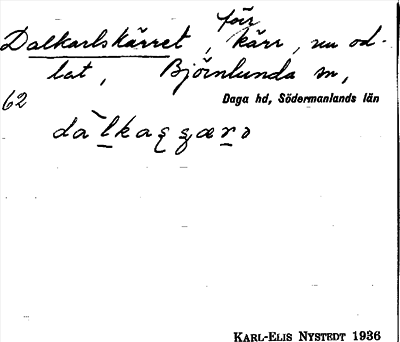 Dalkarlskärret, förr kärr, nu od-
lat, Björnlunda sn,
62 Daga hd, Södermanlands län
KARL-ELIS NYSTEDT 1936